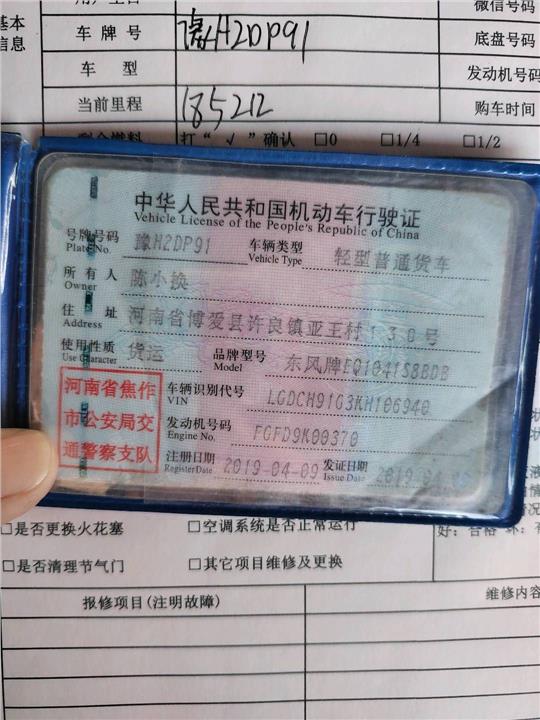 微信号码
基本
信息
车牌号 豫H2DP91 底盘号码
车型 发动机号码
当前里程 185212 购车时间
剩余燃料 打“√”确认 □0 □1/4 □1/2
中华人民共和国机动车行驶证
Vehicle License of the People's Republic of China
号牌号码 豫H2DP91 车辆类型 轻型普通货车
Plate No. Vehicle Type
所有人 陈小换
Owner
住址 河南省博爱县许良镇亚王村130号
Address
使用性质 货运 品牌型号 东风牌EQ1041S8BDB
Use Character Model
河南省焦作
市公安局交
通警察支队
车辆识别代号 LGDCH91G3KH106940
VIN
发动机号码 FGFD9K00370
Engine No.
注册日期 2019-04-09 发证日期 2019
Register Date Issue Date
□是否更换火花塞 □空调系统是否正常运行
□是否清理节气门 □其它项目维修及更换
报修项目(注明故障) 维修内容